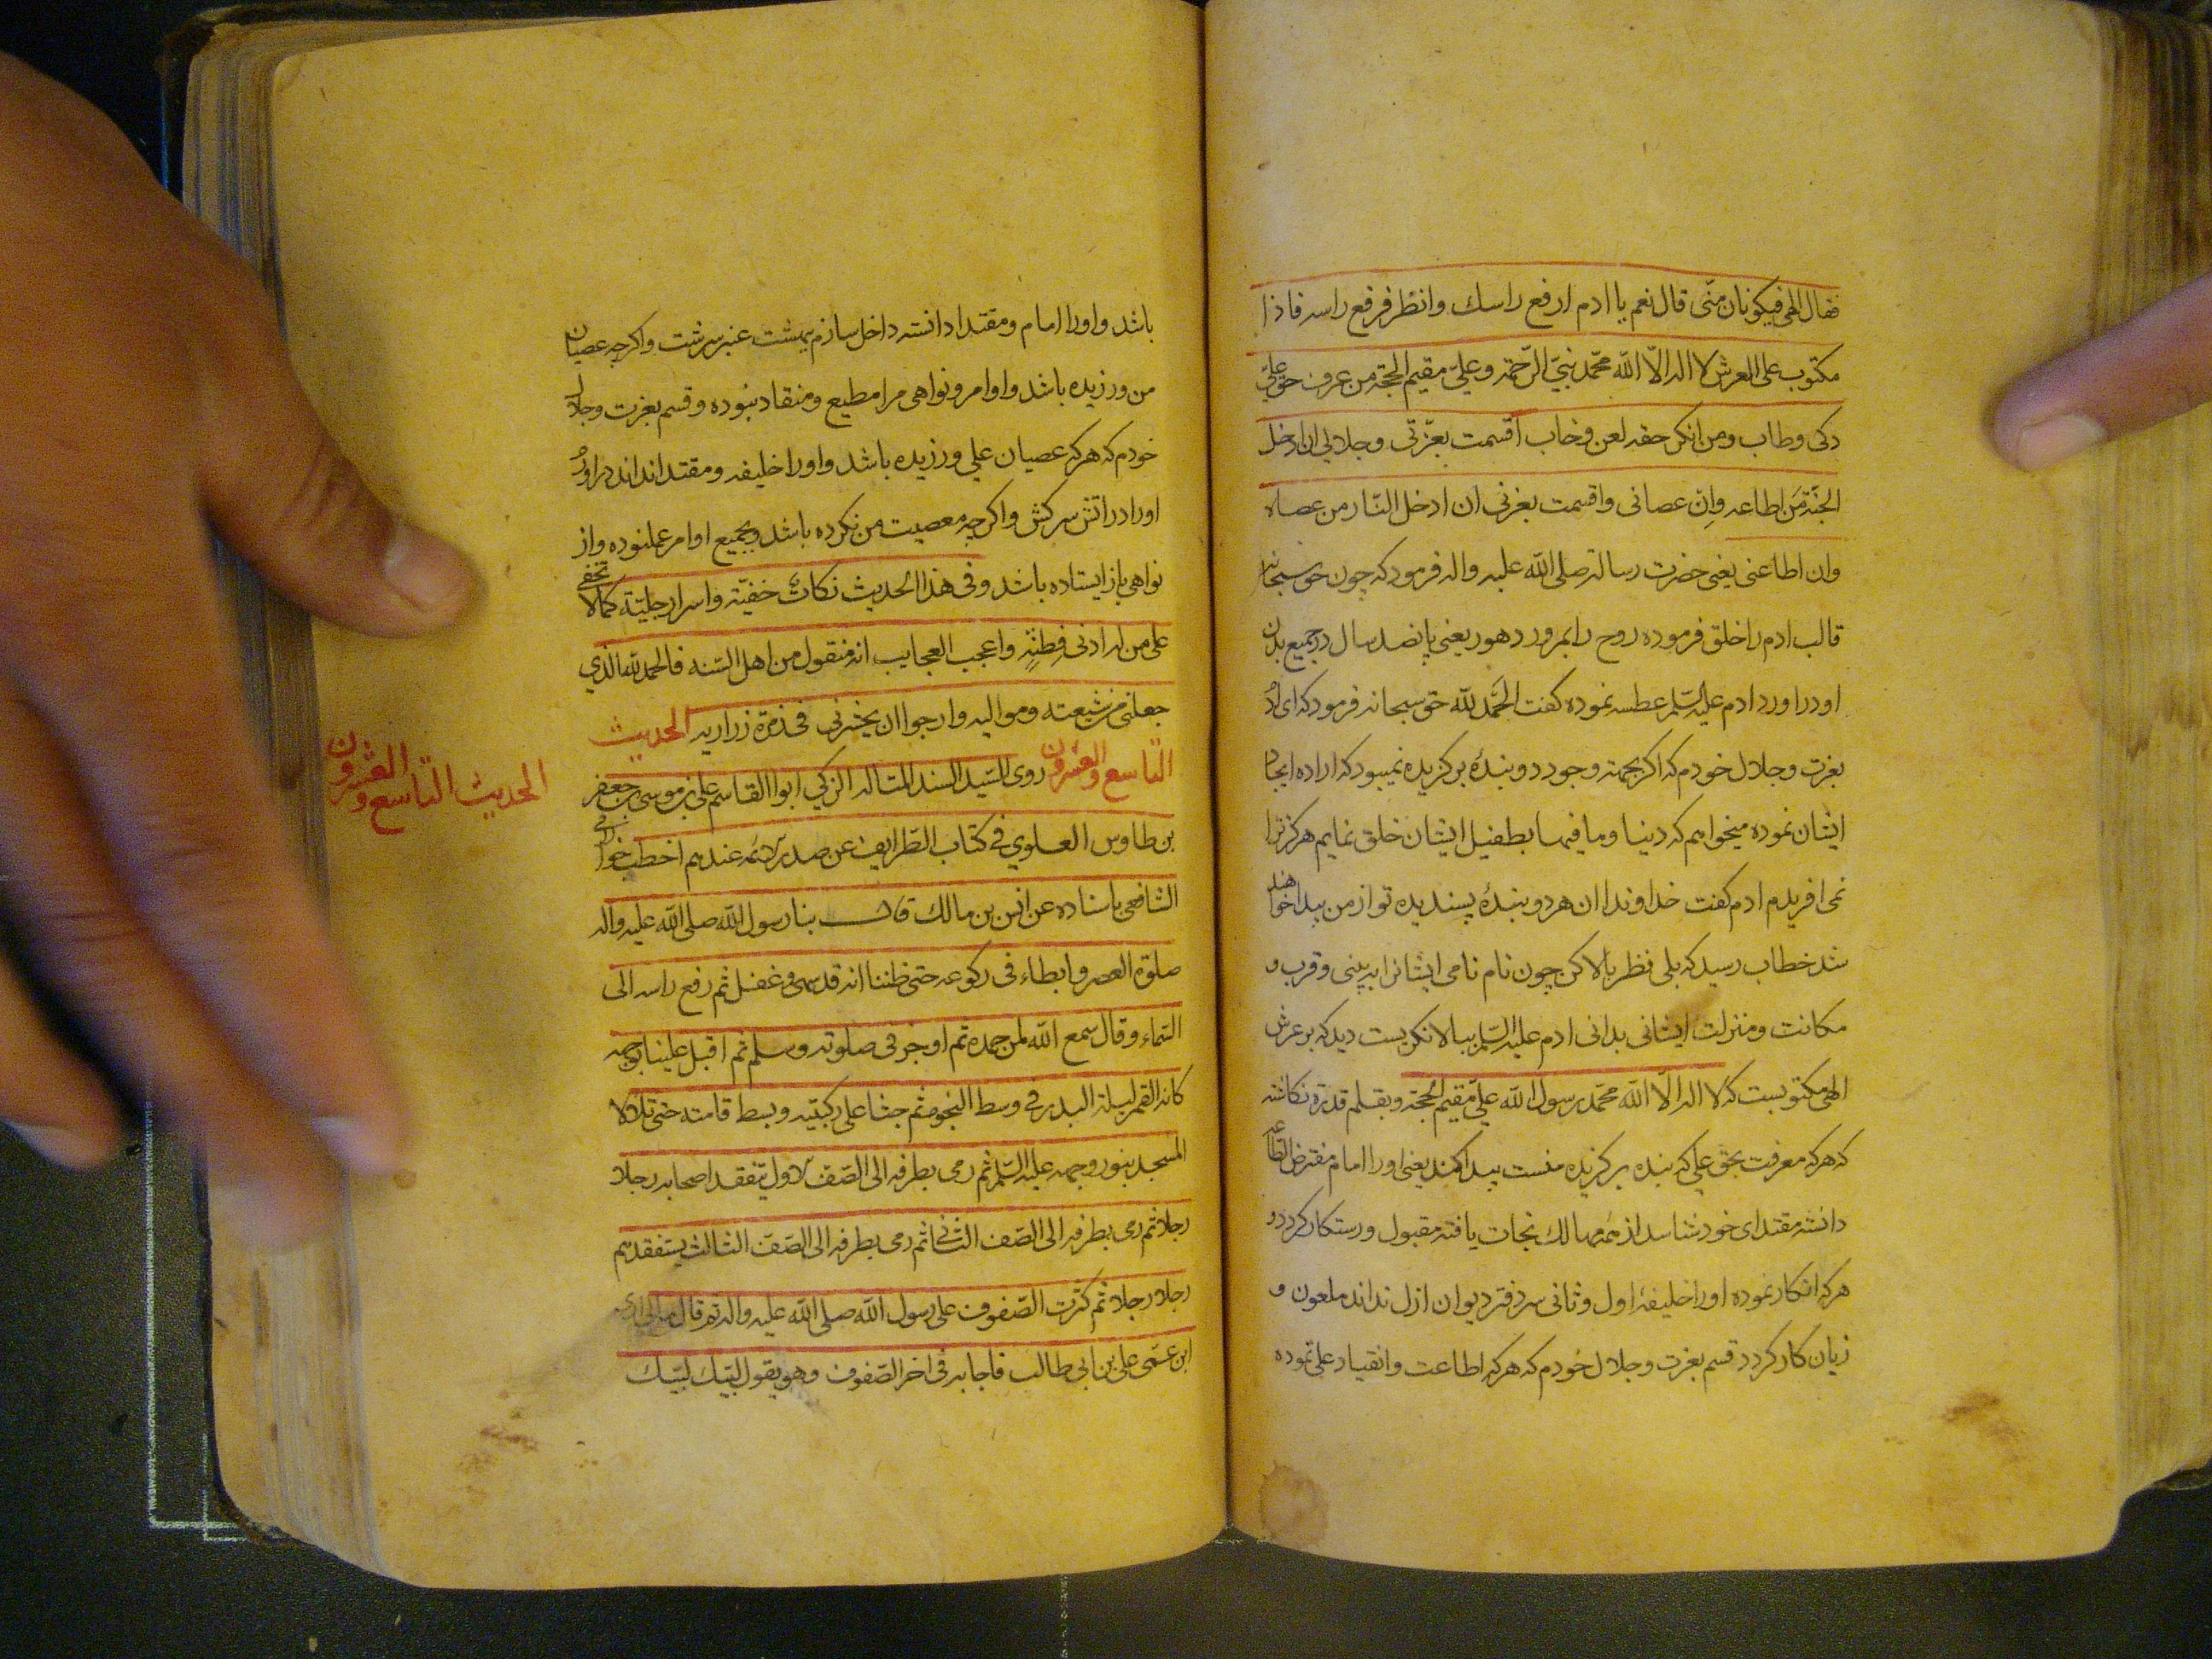 فقال الهی فیکونان منّی قال نعم یا ادم ارفع راسك وانظر فرفع راسه فاذا
مکتوب علی العرش لا اله الّا اللّه محمّد نبیّ الرّحمة وعلیّ مقیم الحجّة من عرف حقّ علیّ
ذکی وطاب ومن انکر حقه لعن وخاب اقسمت بعزّتی وجلالی ان ادخل
الجنّة من اطاعه وان عصانی واقسمت بعزتی ان ادخل النّار من عصاه
وان اطاعنی یعنی حضرت رسالة صلی اللّه علیه واله فرمود که چون حق سبحانه
قالب ادم را خلق فرموده روح را بمرور دهور یعنی پانصد سال در جمیع بدن
او در اورد ادم علیه السّلم عطسه نموده کفت الحمد للّه حق سبحانه فرمود که ای ادم
بعزت وجلال خودم که اکر بجهته وجود دو بندهٔ برکزیده نمیبود که اراده ایجاد
ایشان نموده میخواهم که دنیا وما فیها بطفیل ایشان خلق نمایم هرکز ترا
نمی افریدم ادم کفت خداوندا ان هر دو بندهٔ پسندیده تو از من پیدا خواهند
شد خطاب رسید که بلی نظر بالا کن چون نام نامی ایشانرا به بینی وقرب و
مکانت ومنزلت ایشانی بدانی ادم علیه السّلم ببالا نکریست دید که بر عرش
الهی مکتوبست که لا اله الّا اللّه محمّد رسول اللّه علیّ مقیم الحجّة وبقلم قدرة نکاشته
که هر که معرفت بحق علی که بنده برکزیده منست پیدا کند یعنی اورا امام مفترض الطّاعه
دانسته مقتدای خود شناسد از همه مهالك نجات یافته مقبول ورستکار کردد و
هر که انکار نموده اورا خلیفهٔ اول وثانی سر دفتر دیوان ازل نداند ملعون و
زیان کار کردد قسم بعزت وجلال خودم که هر که اطاعت وانقیاد علی نموده
باشد واورا امام ومقتدا دانسته داخل سازم ببهشت عنبر سرشت واکرچه عصیان
من ورزیده باشد واوامر ونواهی مرا مطیع ومنقاد نبوده وقسم بعزت وجلال
خودم که هر که عصیان علی ورزیده باشد واورا خلیفه ومقتدا نداند در اورم
اورا در اتش سرکش واکرچه معصیت من نکرده باشد وبجمیع اوامر عمل نموده واز
نواهی باز ایستاده باشد وفی هذا الحدیث نکاتٌ خفیّة واسرار جلیّة کما لا تخفی
علی من له ادنی فطنةٍ واعجب العجایب انه منقول من اهل السّنه فالحمد للّه الذی
جعلنی من شیعته وموالیه وارجوا ان یحشرنی فی زمرة زراریه الحدیث
التاسع والعشرون روی السّید السند المتاله الزکی ابوا القاسم علی بن موسی بن جعفر
الحدیث التاسع والعشرون
بن طاوس العلوی فی کتاب الطّرایف عن صدر الائمّه عندهم اخطب خوارزمی
الشافعی باسناده عن انس بن مالك قال بنا رسول اللّه صلی اللّه علیه واله
صلوة العصر وابطاء فی رکوعه حتی ظننا انه قد سهی وغفل ثم رفع راسه الی
السّماء وقال سمع اللّه لمن حمده ثم اوجز فی صلوته وسلم ثم اقبل علینا بوجهه
کانه القمر لیلة البدر فی وسط النجوم ثم جثا علی رکبتیه وبسط قامته حتی تلالا
المسجد بنور وجهه علیه السّلم ثم رمی بطرفه الی الصّف الاول یتفقد اصحابه رجلا
رجلا ثم رمی بطرفه الی الصّف الثّانی ثم رمی بطرفه الی الصّفّ الثالث یستفقدهم
رجلا رجلا ثم کثرت الصّفوف علی رسول اللّه صلی اللّه علیه واله ثم قال
ابن عمّی علی بن ابی طالب فاجابه فی اخر الصّفوف وهو یقول لبّیك لبّیك